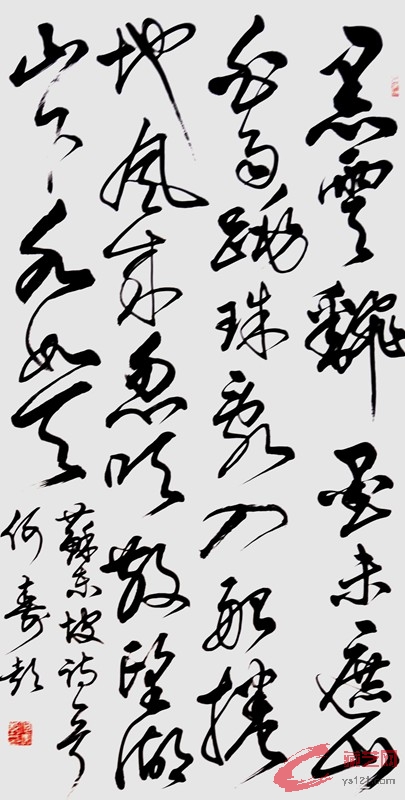 黑雲翻墨未遮山
白雨跳珠亂入船捲
地風來忽吹散望湖
山下水如天
蘇東坡詩一首
何壽彭